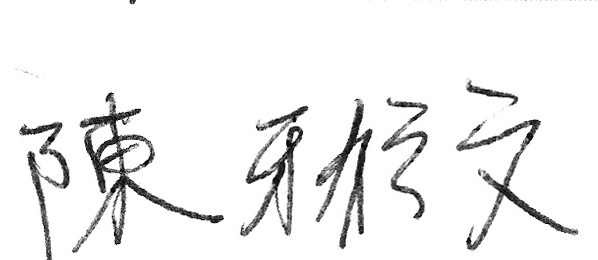 陳雅文